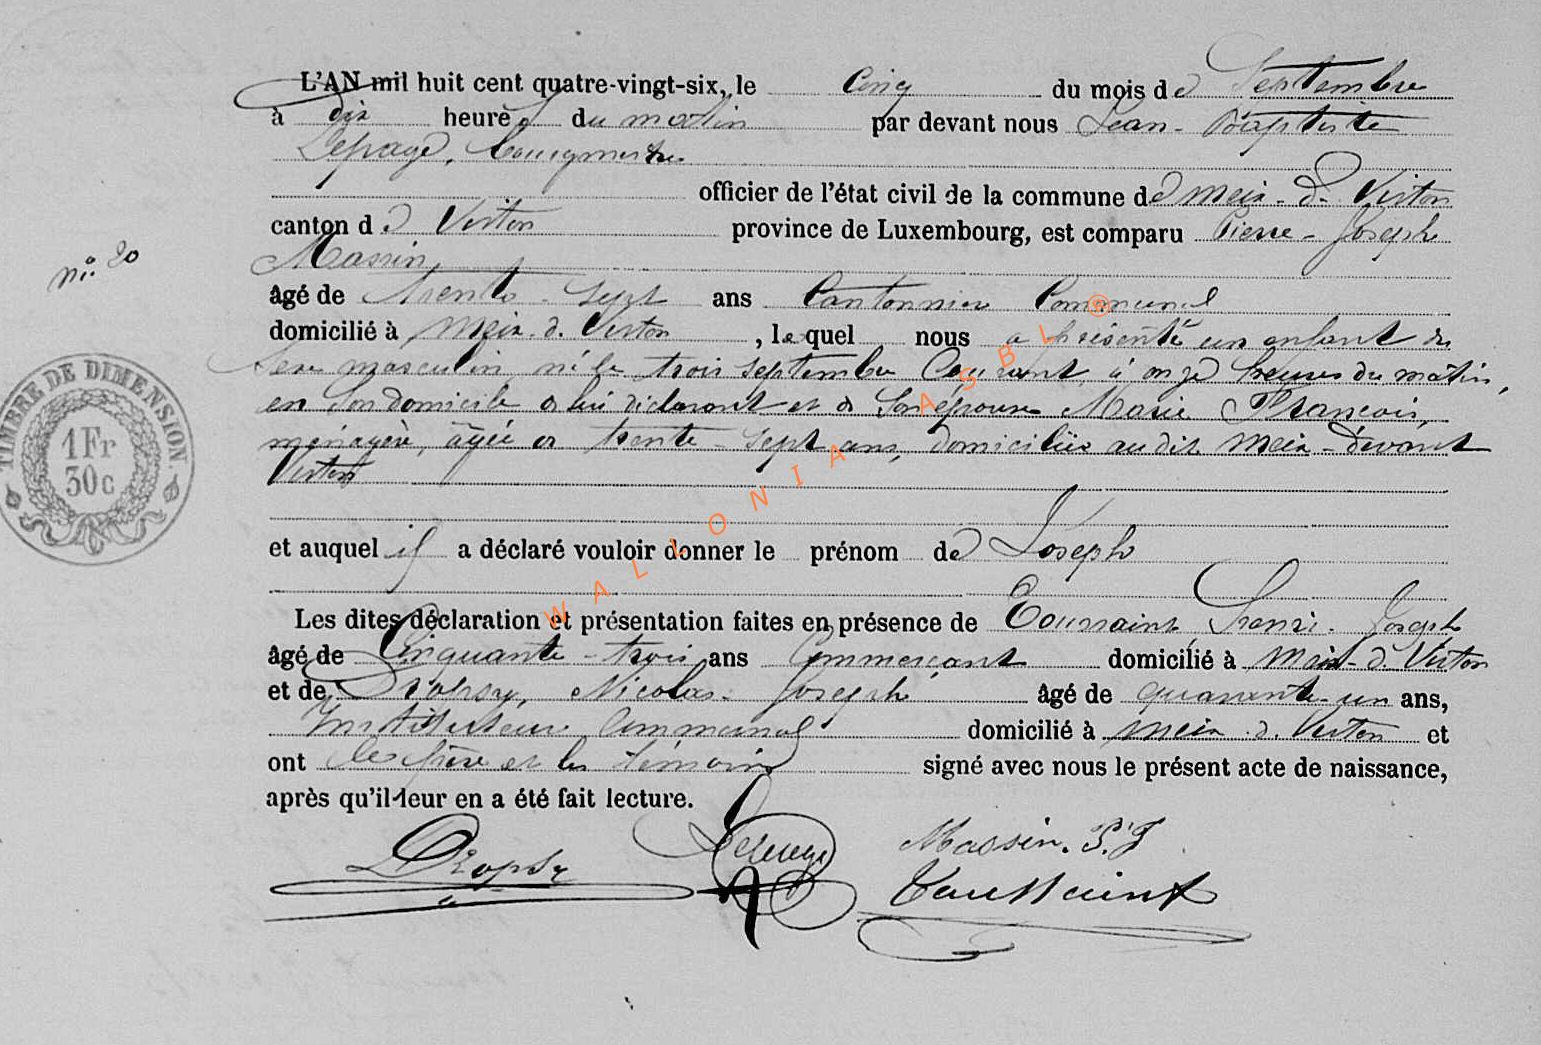 L'AN mil huit cent quatre-vingt-six, le cinq du mois de Septembre
à dix heures du matin par devant nous Jean-Baptiste
Lepage, bourgmestre
officier de l'état civil de la commune de Meix-d-Virton
canton de Virton province de Luxembourg, est comparu Pierre-Joseph
Massin
n° 20
âgé de trente-sept ans Cantonnier Communal
domicilié à Meix-d-Virton, lequel nous a présenté un enfant du
Sexe masculin né le trois septembre Courant, à onze heures du matin,
en son domicile de lui déclarant et de Son épouse Marie François,
ménagère, âgée de trente-sept ans, domiciliée au dit Meix-devant
Virton
TIMBRE DE DIMENSION.
1 Fr
30c
et auquel il a déclaré vouloir donner le prénom de Joseph
WALLONIA ASBL ®
Les dites déclaration et présentation faites en présence de Toussaint, Henri-Joseph
âgé de Cinquante-trois ans Commerçant domicilié à Meix-d-Virton
et de Dropsy, Nicolas-Joseph, âgé de quarante-un ans,
Instituteur Communal domicilié à Meix-d-Virton et
ont les père et les témoins signé avec nous le présent acte de naissance,
après qu'il leur en a été fait lecture.
Dropsy Lepage Massin. P.J
Toussaint